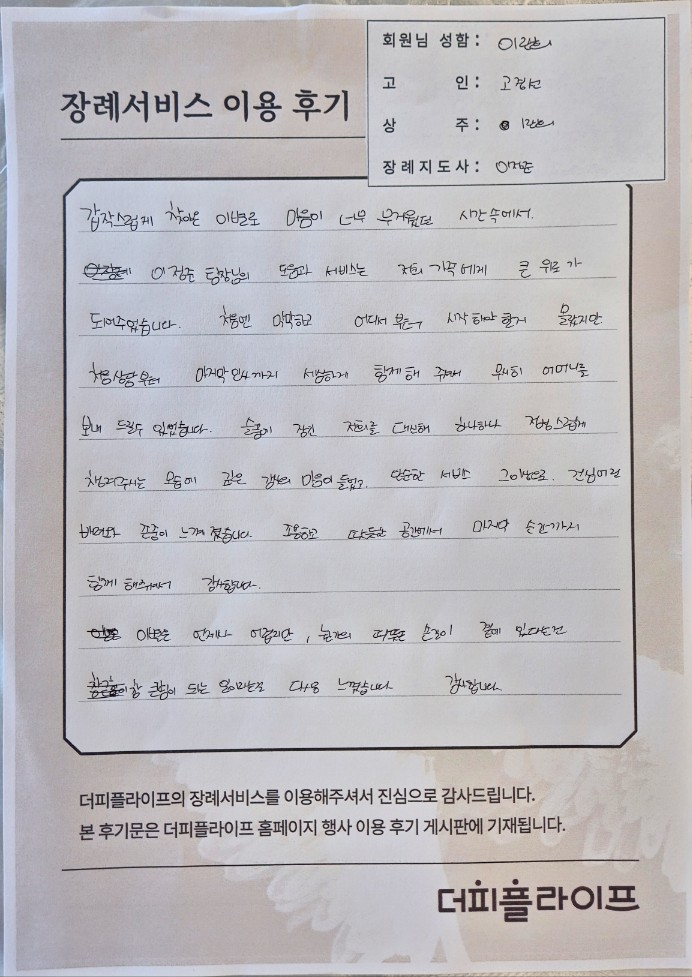 회원님 성함 :
고 인 :
상 주 :
장례지도사 : 이정준
장례서비스 이용 후기
갑작스럽게 찾아온 이별로 마음이 너무 무거웠던 시간 속에서.
이정준 팀장님의 도움과 서비스는 저희 가족에게 큰 위로가
되어주었습니다. 처음엔 막막하고 어디서 부터 시작 해야 할지 몰랐지만
처음 상담부터 마지막 인사까지 세심하게 함께 해 주셔서 무사히 어머니를
보내 드릴수 있었습니다. 슬픔에 잠긴 저희를 대신해 하나하나 정성스럽게
챙겨주시는 모습에 깊은 감사의 마음이 들었고, 단순한 서비스 그이상으로. 진심어린
배려와 존중이 느껴 졌습니다. 조용하고 따듯한 공간에서 마지막 순간까지
함께 해주셔서 감사합니다.
이별은 언제나 어렵지만, 누군가의 따뜻한 손길이 곁에 있다는건
참 큰힘이 되는 일이라는걸 다시 느꼈습니다. 감사합니다.
더피플라이프의 장례서비스를 이용해주셔서 진심으로 감사드립니다.
본 후기문은 더피플라이프 홈페이지 행사 이용 후기 게시판에 기재됩니다.
더피플라이프